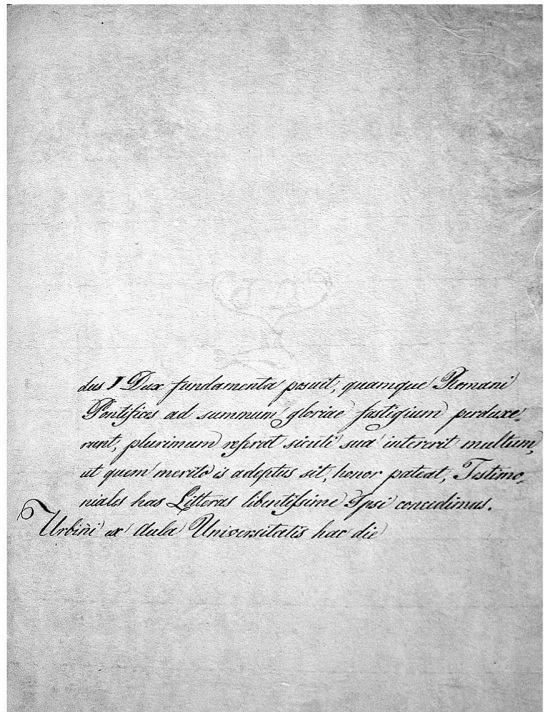 dus I Dux fundamenta posuit, quamque Romani
Pontifices ad summum gloriae fastigium perduxe,
runt, plurimum referat sicuti sua intererit multum,
ut quem merito is adeptus sit, honor pateat, Testimo,
niales has Litteras libentissime Ipsi concedimus.
Urbini ex Aula Universitatis hac die